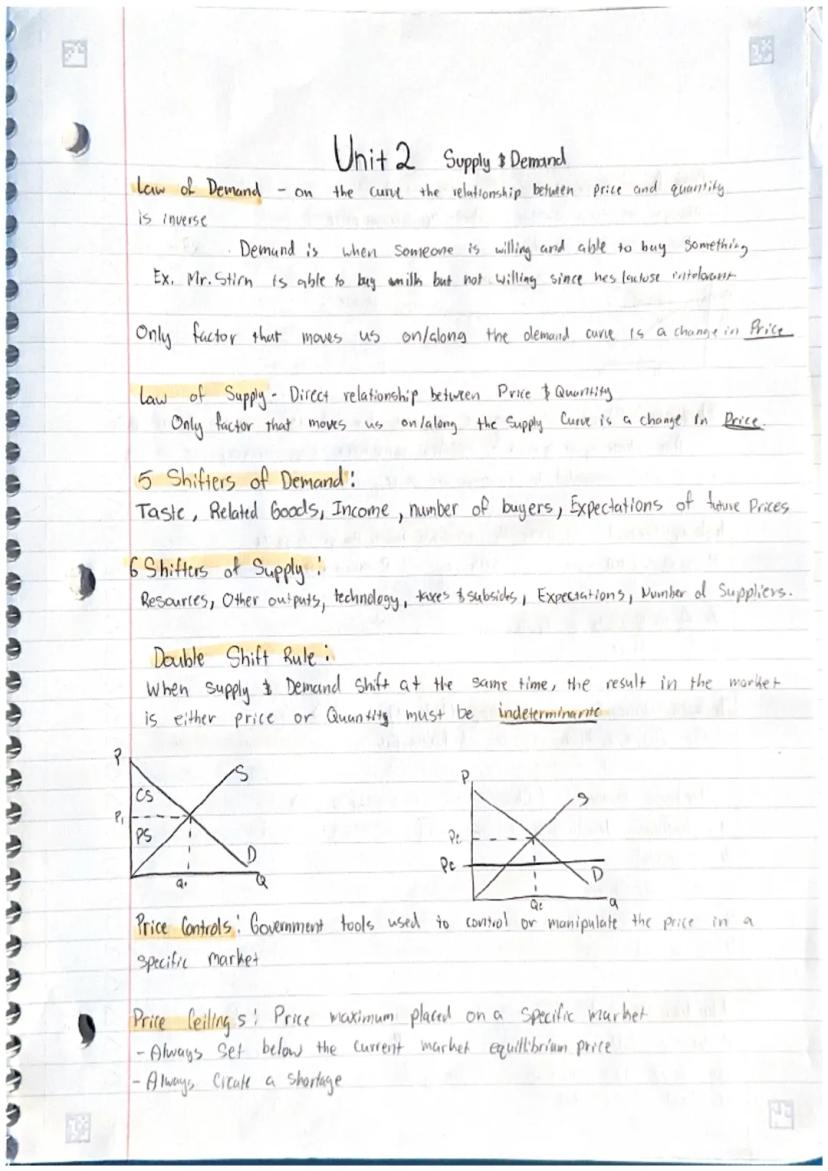 Unit 2 Supply & Demand
Law of Demand - on the curve the relationship between price and quantity
is inverse
. Demand is when someone is willing and able to buy something
Ex. Mr. Stirn is able to buy milk but not willing since hes lactose intolerant
Only factor that moves us on/along the demand curve is a change in Price
Law of Supply - Direct relationship between Price & Quantity
Only factor that moves us on/along the Supply Curve is a change in Price.
5 Shifters of Demand:
Taste, Related Goods, Income, number of buyers, Expectations of future Prices
6 Shifters of Supply:
Resources, Other outputs, technology, taxes & subsides, Expectations, Number of Suppliers.
Double Shift Rule:
When Supply & Demand Shift at the same time, the result in the market
is either price or Quantity must be indeterminante
P
S
CS
P1
PS
D
Q1
Q
P
S
Pe
Pc
D
Qe
Q
Price Controls: Government tools used to control or manipulate the price in a
specific market
Price Ceilings: Price maximum placed on a specific market
- Always set below the current market equillibrium price
- Always create a shortage